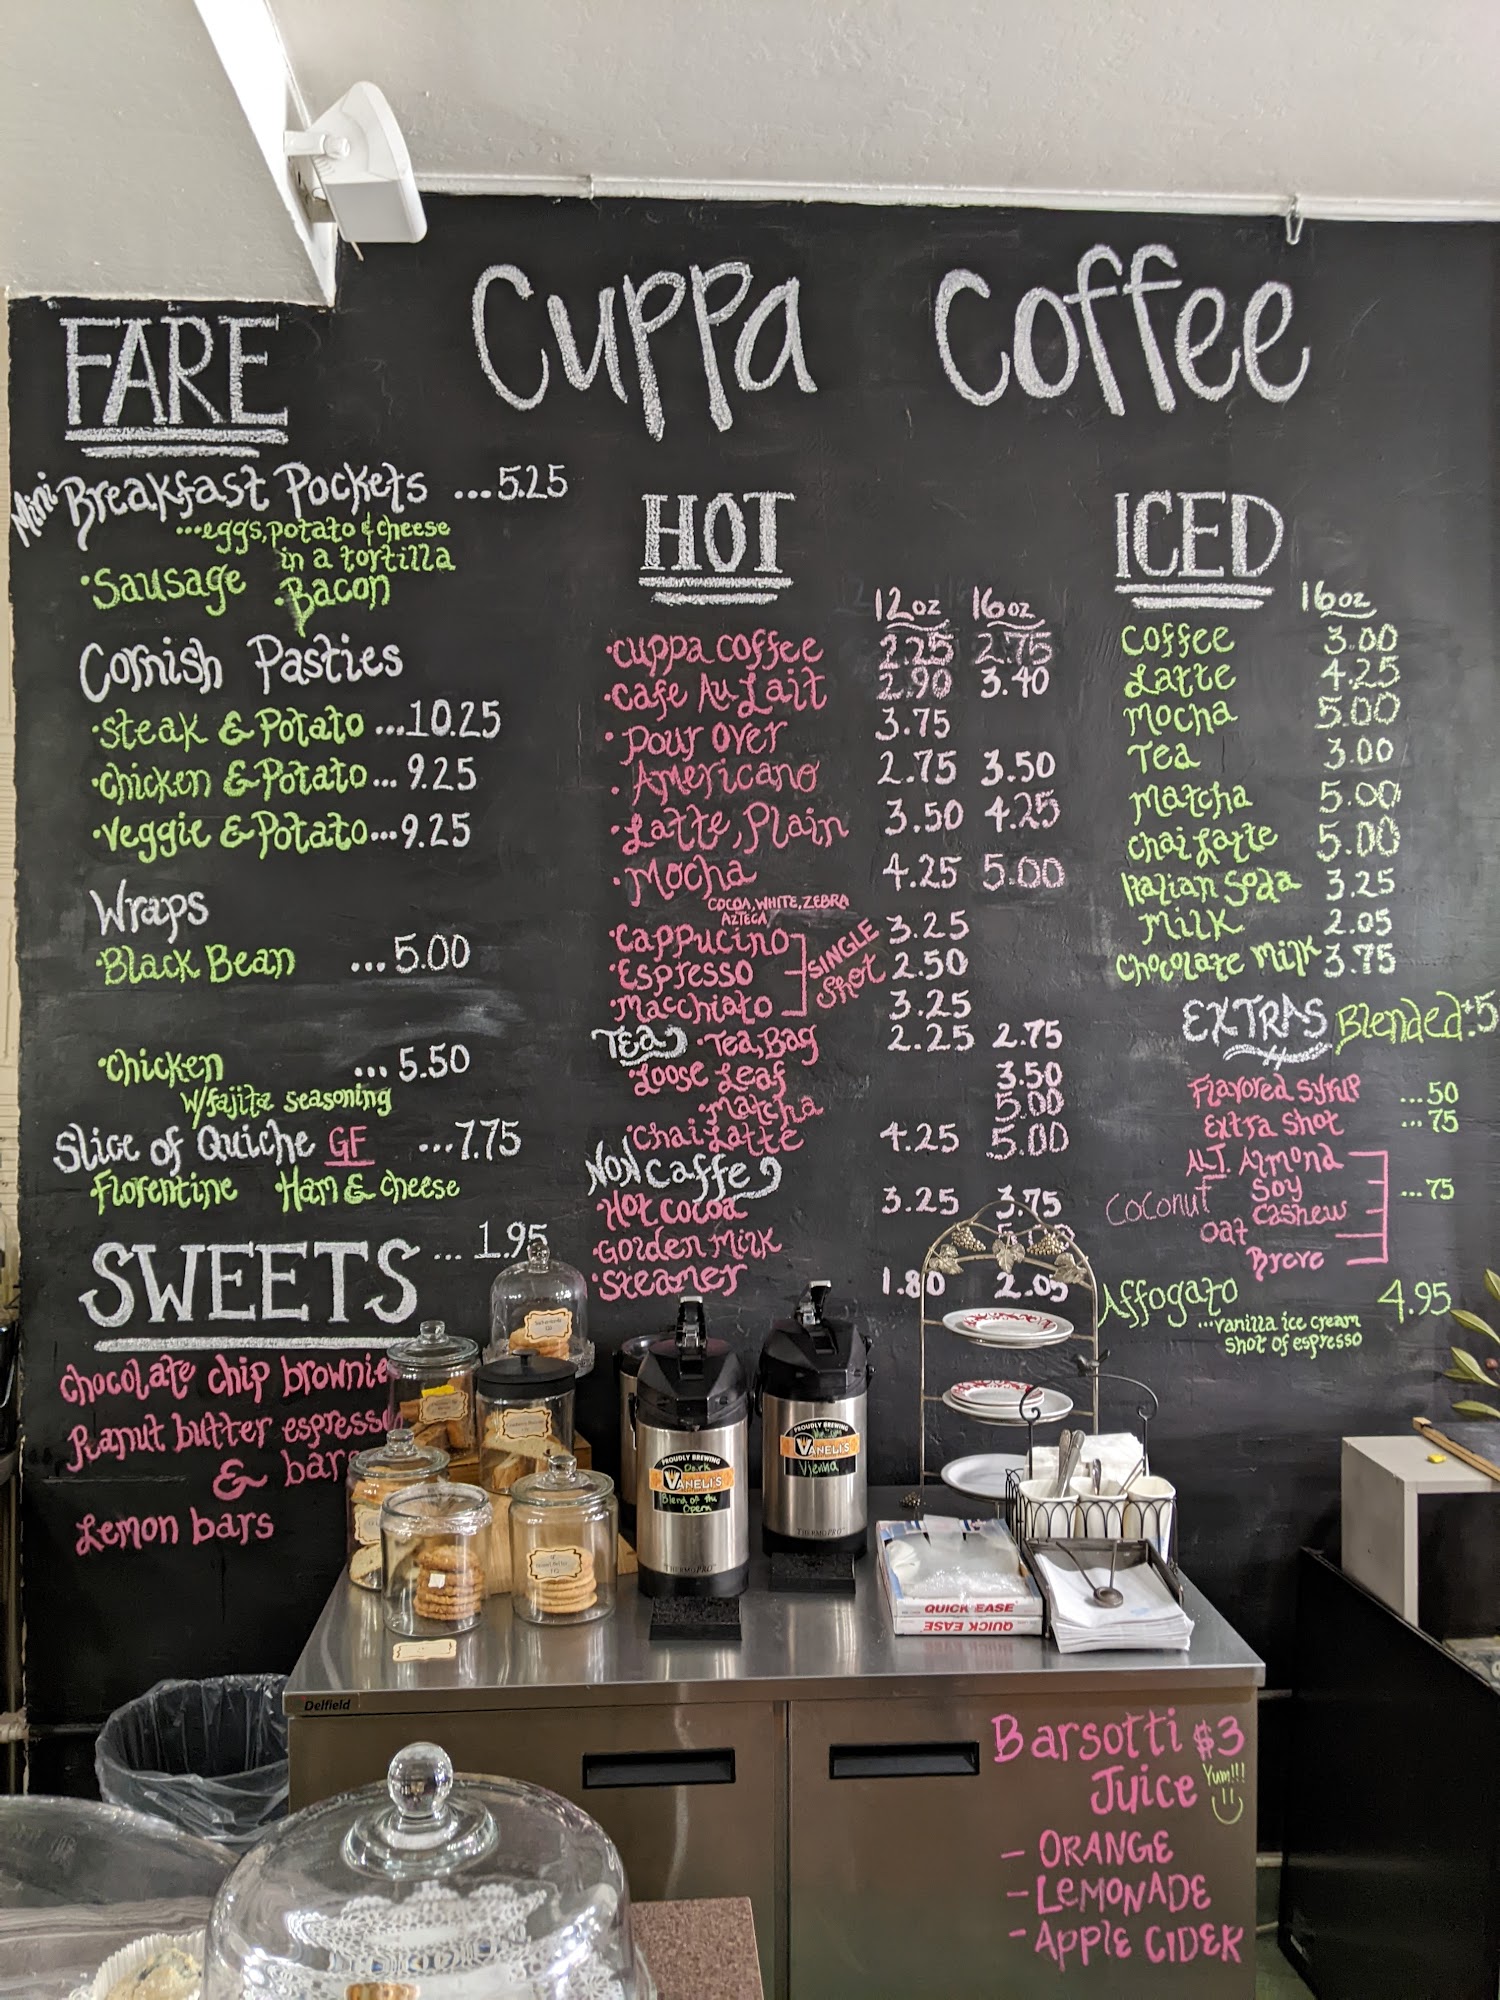 Cuppa Coffee
FARE
Mini Breakfast Pockets ...5.25
...eggs, potato & cheese
in a tortilla
•Sausage •Bacon
Cornish Pasties
•Steak & Potato ...10.25
•Chicken & Potato... 9.25
•Veggie & Potato...9.25
Wraps
•Black Bean ...5.00
•Chicken ...5.50
w/fajita seasoning
Slice of Quiche GF ...7.75
Florentine Ham & cheese
SWEETS ... 1.95
chocolate chip brownie
Peanut butter espresso
& bars
Lemon bars
HOT
12oz 16oz
•Cuppa Coffee 2.25 2.75
•Cafe Au Lait 2.90 3.40
•Pour Over 3.75
•Americano 2.75 3.50
•Latte, Plain 3.50 4.25
•Mocha 4.25 5.00
COCOA, WHITE, ZEBRA
AZTECA
•Cappucino 3.25
•Espresso 2.50
•Macchiato 3.25
SINGLE
Shot
TEA •Tea, Bag 2.25 2.75
•Loose Leaf 3.50
•Matcha 5.00
•Chai Latte 4.25 5.00
NON Caffe
•Hot Cocoa 3.25 3.75
•Golden Milk
•Steamer 1.80 2.05
ICED
16oz
Coffee 3.00
Latte 4.25
Mocha 5.00
Tea 3.00
Matcha 5.00
Chai Latte 5.00
Italian Soda 3.25
Milk 2.05
Chocolate Milk 3.75
EXTRAS Blended
Flavored Syrup ...50
Extra Shot ...75
ALT. Almond
Soy ...75
Coconut Cashew
Oat
Breve
Affogato 4.95
...vanilla ice cream
shot of espresso
PROUDLY BREWING
Dark
VANELI'S
Blend of the
Opera
THERMOPRO
PROUDLY BREWING
VANELI'S
Vienna
THERMOPRO
QUICK EASE
QUICK EASE
Delfield
Barsotti $3
Juice Yum!!!
- ORANGE
- LEMONADE
- APPLE CIDER